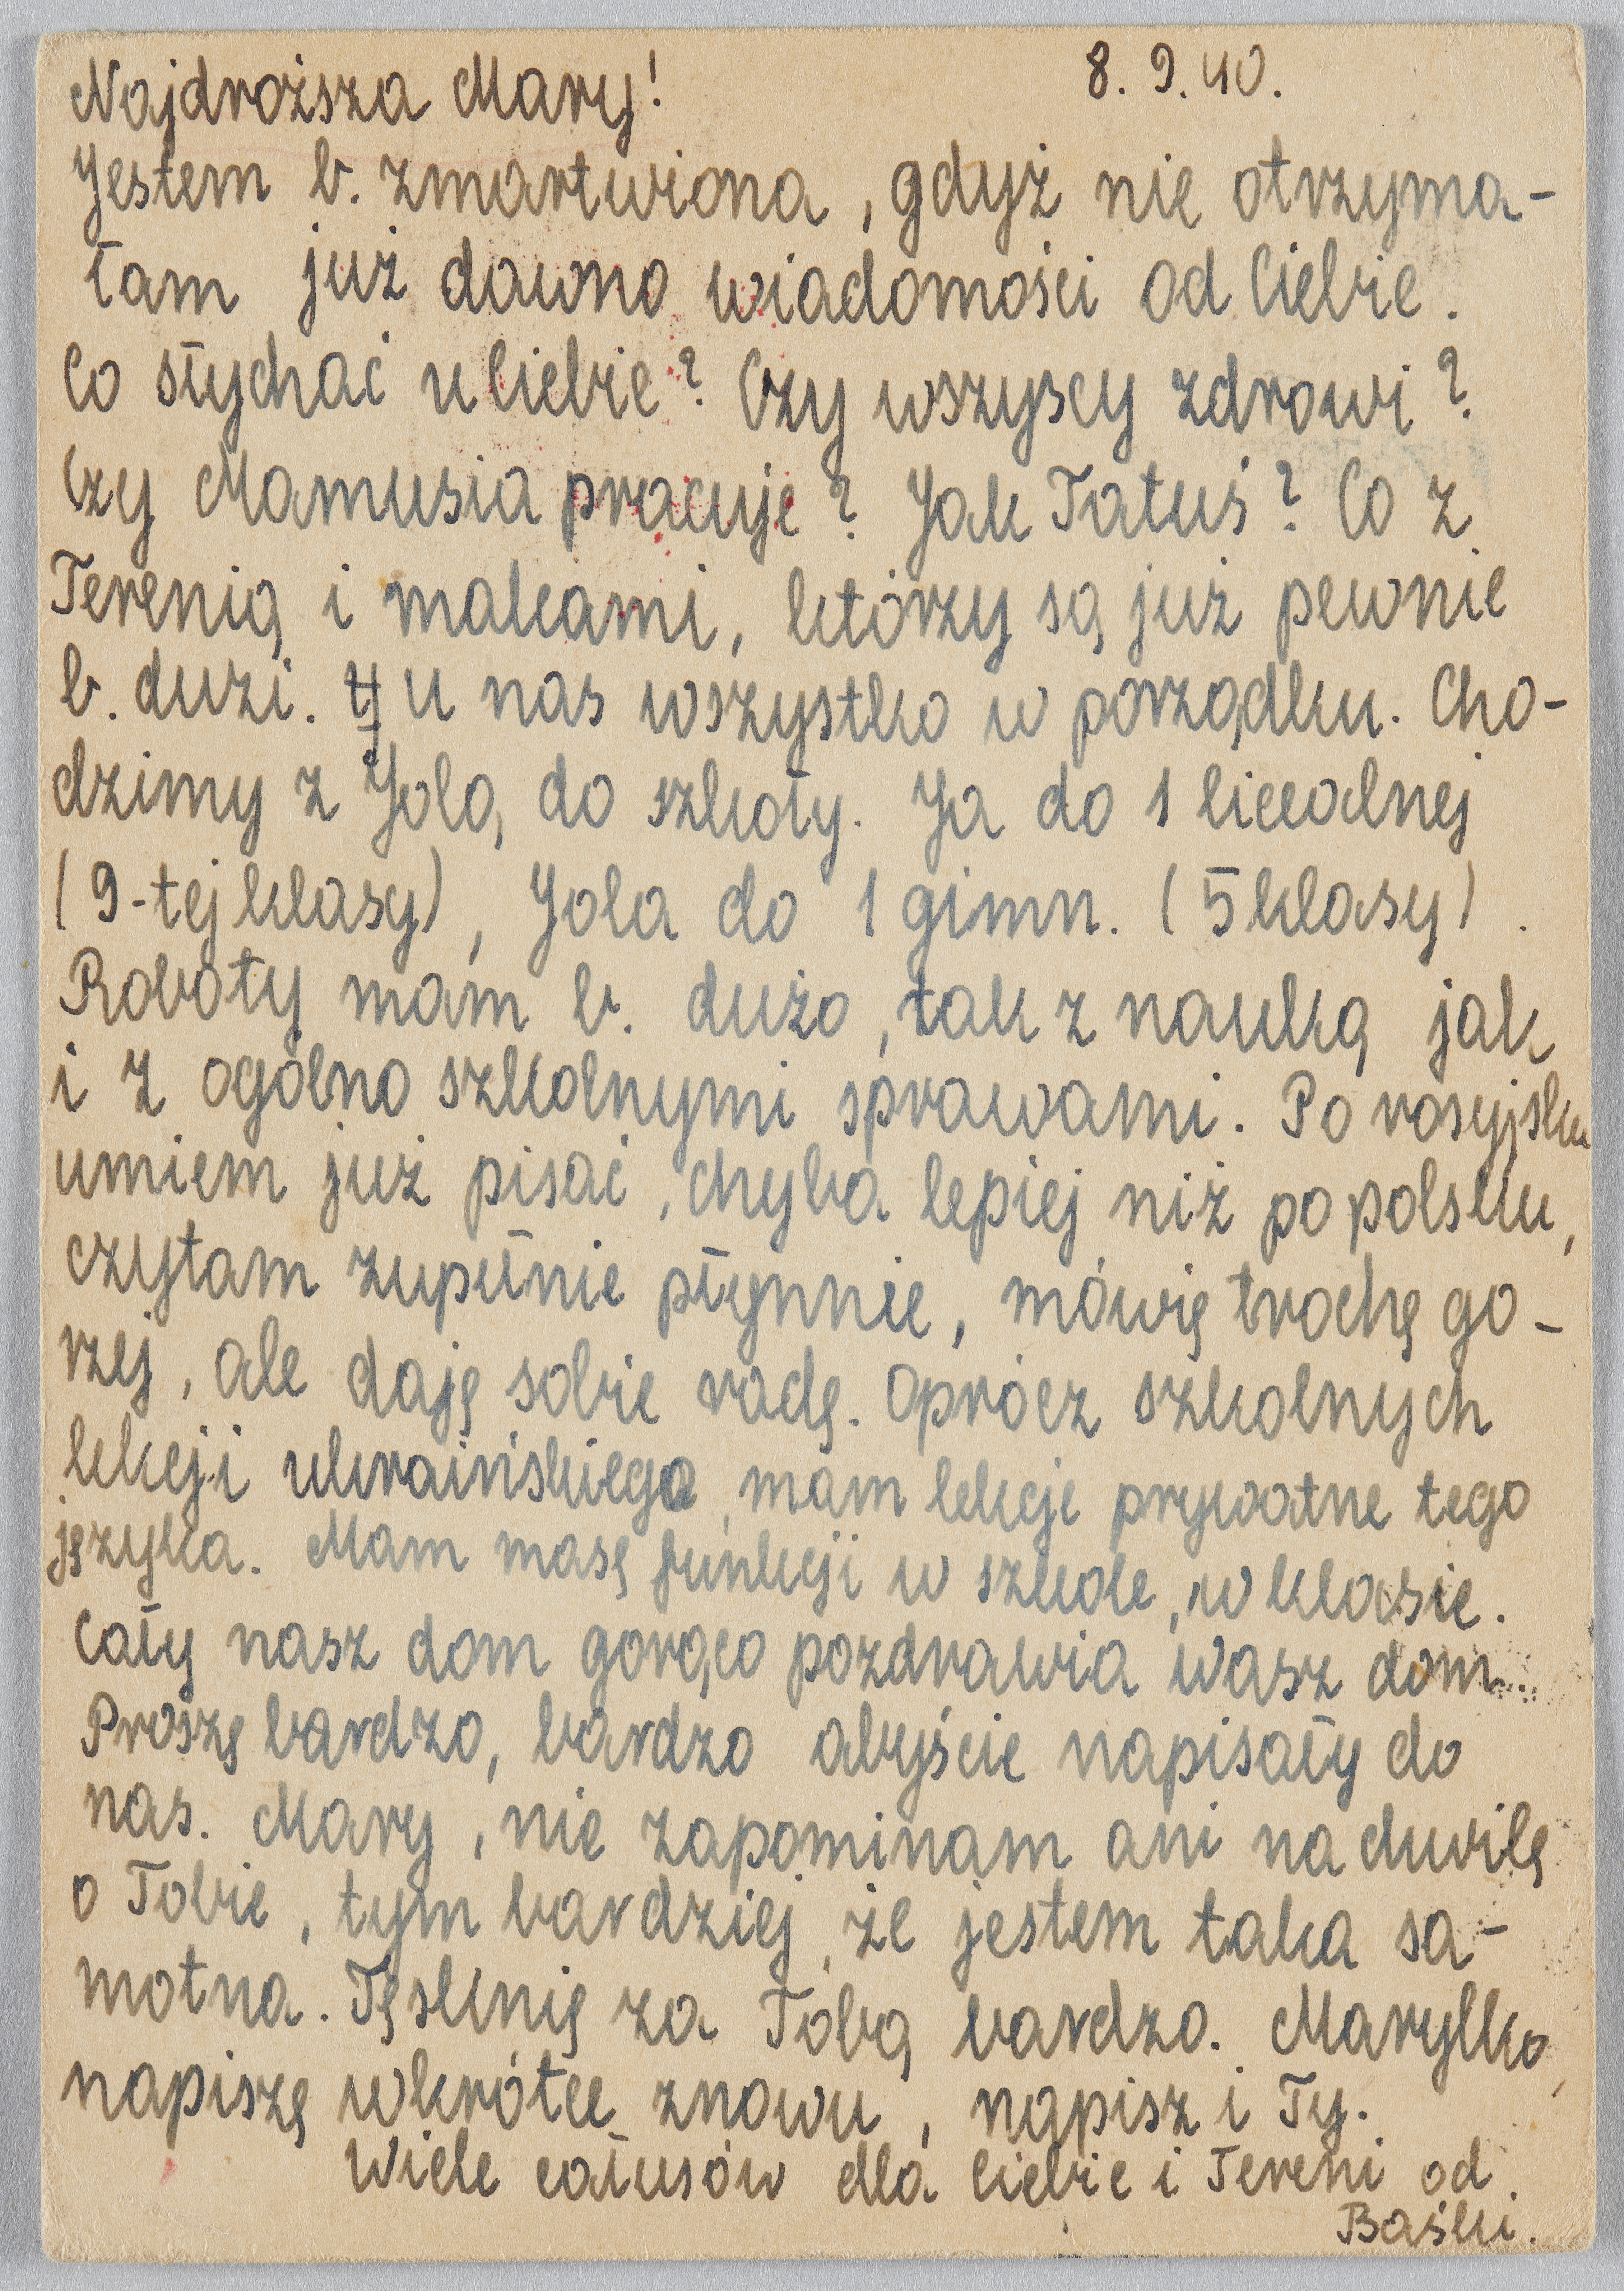 Najdroższa Mary! 8. 9. 40.
Jestem b. zmartwiona, gdyż nie otrzyma-
łam już dawno wiadomości od Ciebie.
Co słychać u Ciebie? Czy wszyscy zdrowi?
Czy Mamusia pracuje? Jak Tatuś? Co z
Terenią i malcami, którzy są już pewnie
b. duzi. U nas wszystko w porządku. Cho-
dzimy z Jolą do szkoły. Ja do 1 licealnej
(9-tej klasy), Jola do 1 gimn. (5 klasy).
Roboty mam b. dużo, tak z nauką jak
i z ogólno szkolnymi sprawami. Po rosyjsku
umiem już pisać, chyba lepiej niż po polsku,
czytam zupełnie płynnie, mówię trochę go-
rzej, ale daję sobie radę. Oprócz szkolnych
lekcji ukraińskiego, mam lekcje prywatne tego
języka. Mam masę funkcji w szkole, w klasie.
Cały nasz dom gorąco pozdrawia wasz dom.
Proszę bardzo, bardzo abyście napisały do
nas. Mary, nie zapominam ani na chwilę
o Tobie, tym bardziej, że jestem taka sa-
motna. Tęsknię za Tobą bardzo. Marylko,
napiszę wkrótce znowu, napisz i Ty.
Wiele całusów dla Ciebie i Tereni od
Baśki.